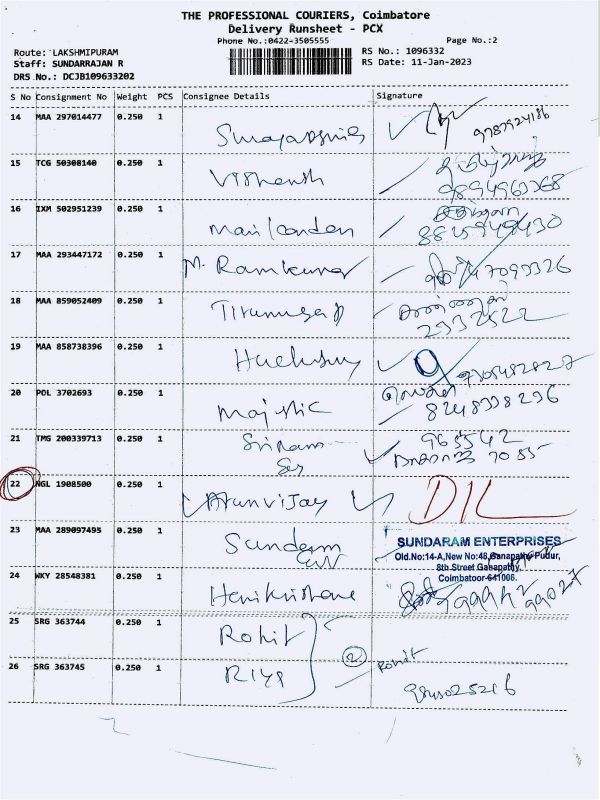 THE PROFESSIONAL COURIERS, Coimbatore
Delivery Runsheet - PCX
Phone No.:0422-3505555 Page No.:2
Route: LAKSHMIPURAM RS No.: 1096332
Staff: SUNDARRAJAN R RS Date: 11-Jan-2023
DRS No.: DCJB109633202
S No Consignment No Weight PCS Consignee Details Signature
14 MAA 297014477 0.250 1 9787924186
15 TCG 50308140 0.250 1
16 IXM 502951239 0.250 1 Manikandan
17 MAA 293447172 0.250 1 M. Ramkumar
18 MAA 859052409 0.250 1 Tirumurgan 2332522
19 MAA 858738396 0.250 1
20 POL 3702693 0.250 1 Majistic 8248338236
21 TMG 200339713 0.250 1 Sriram 965542
7055
22 NGL 1908500 0.250 1 Arunvijay DIL
23 MAA 289097495 0.250 1 Sundaram
SUNDARAM ENTERPRISES
Old.No:14-A,New No:48,Ganapathy Pudur,
8th Street Ganapathy,
Coimbatoor-641006.
24 WKY 28548381 0.250 1 Harikrishana
25 SRG 363744 0.250 1 Rohit
2 Rohit
26 SRG 363745 0.250 1 Riya